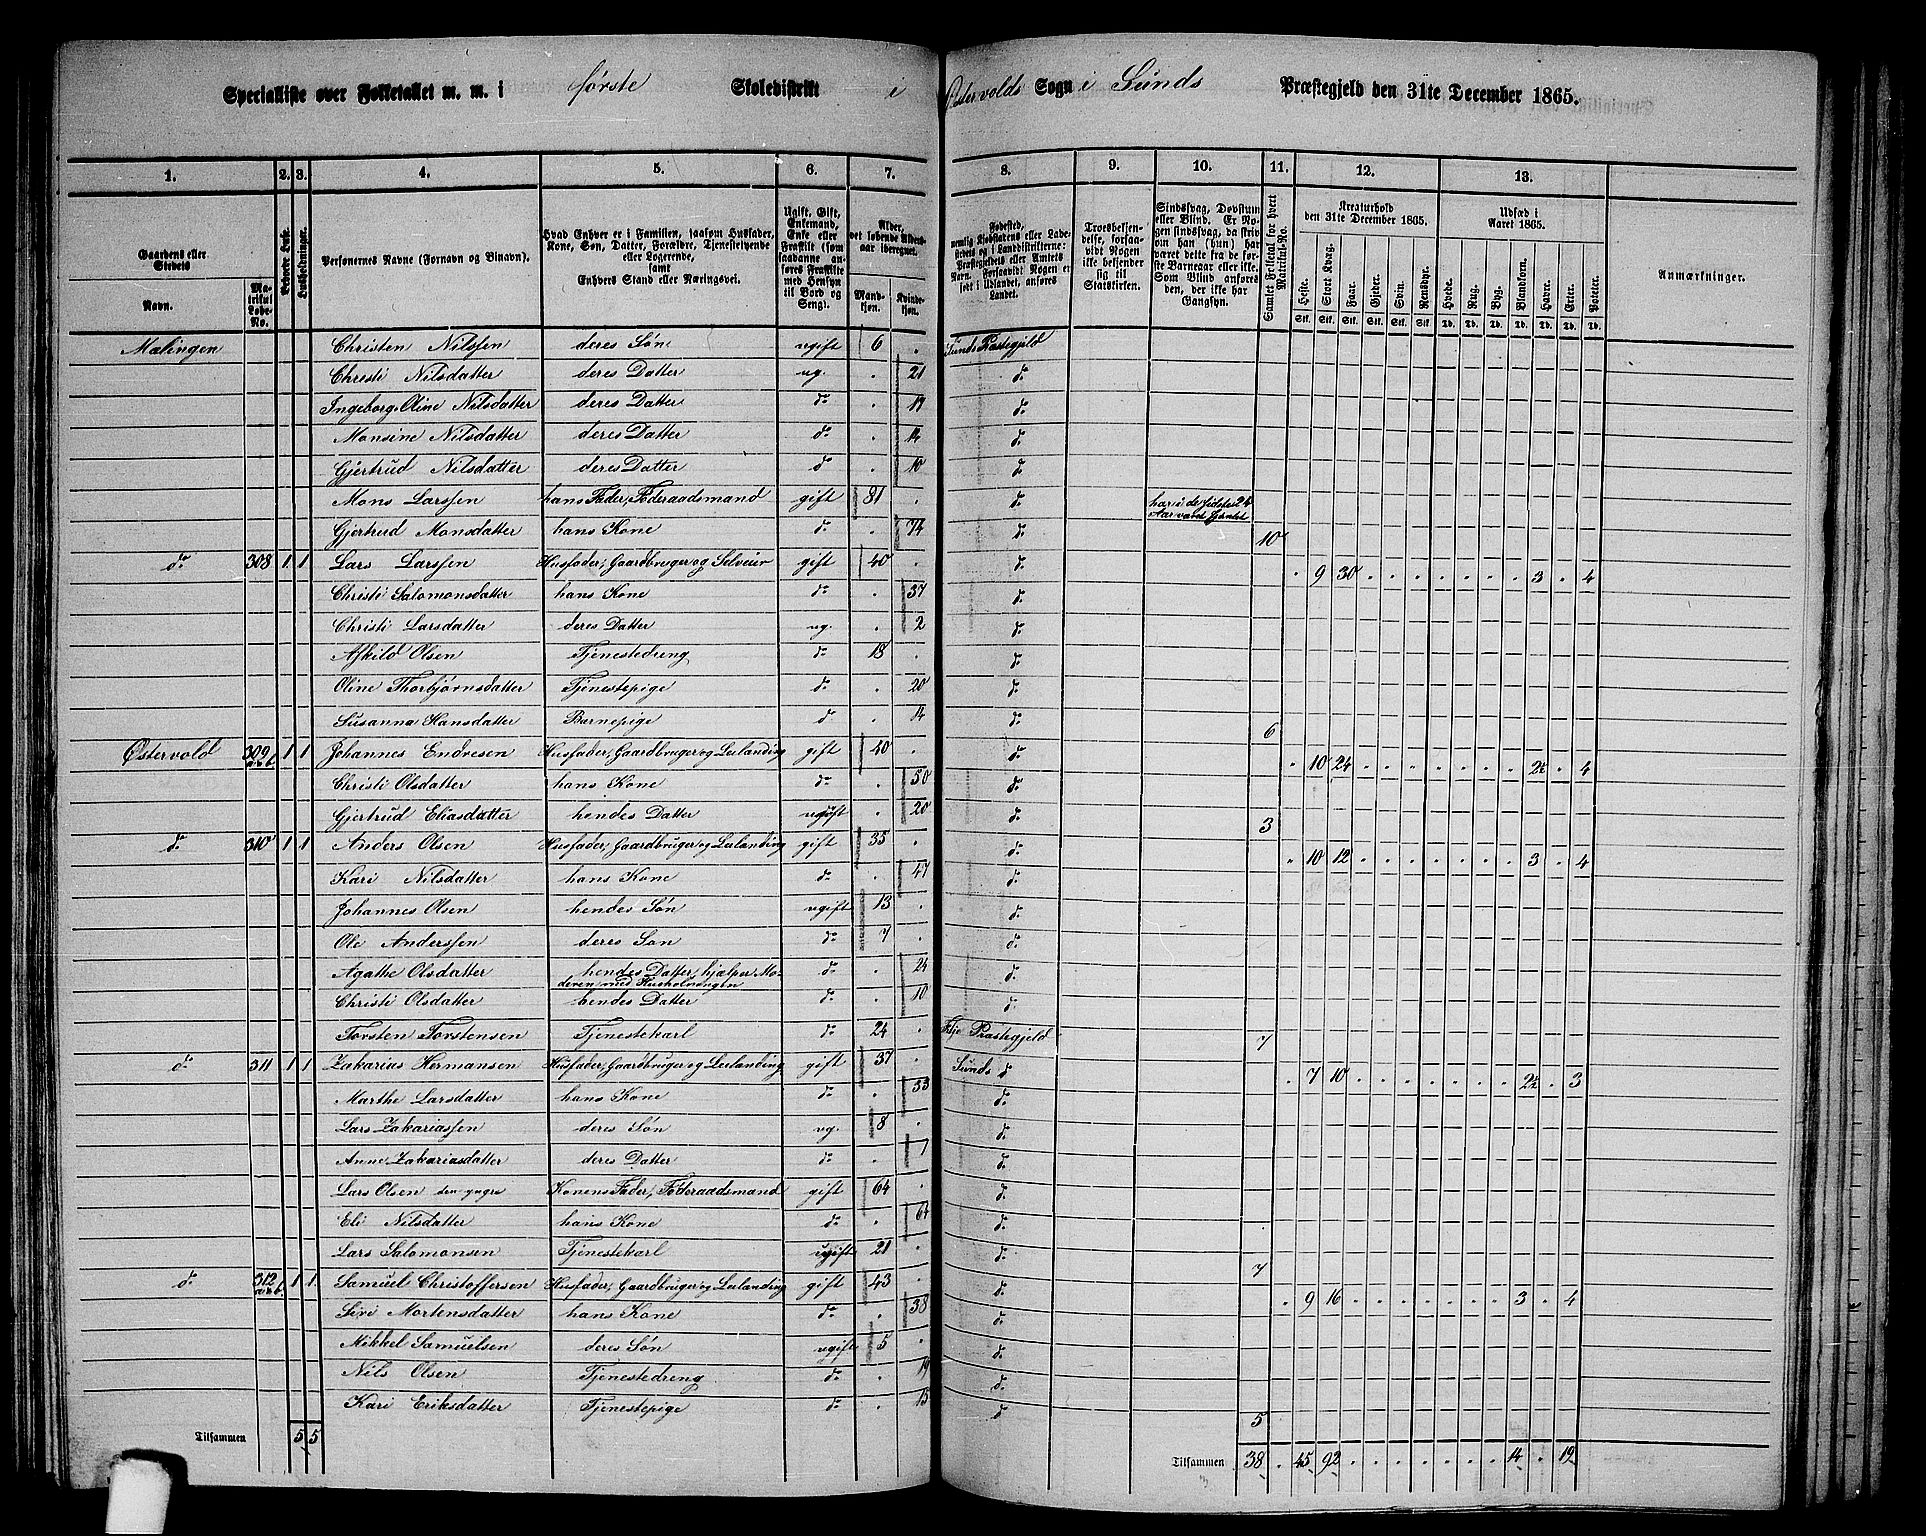 Specialliste over Folketallet m. m. i første Skoledistrikt i Østervolds Sogn i Sunds Præstegjeld den 31te December 1865.
1. 2. 3. 4. 5. 6. 7. 8. 9. 10. 11. 12. 13.
Gaardens eller Stedets Navn. Matrikul Løbe-No. Beboede Huse. Huusholdninger. Personernes Navne (Fornavn og Binavn). Hvad Enhver er i Familien, saasom Husfader, Kone, Søn, Datter, Forældre, Tjenestetyende eller Logerende, samt Enhvers Stand eller Næringsvei. Ugift, Gift, Enkemand, Enke eller Fraskilt (som saadanne anføres Fraskilte med Hensyn til Bord og Seng). Alder, det løbende Aldersaar iberegnet. Mandkjøn. Kvindekjøn.
Troesbekjendelse, forsaavidt Nogen ikke bekjender sig til Statskirken. Samlet Folketal for hvert Matrikul-No. Kreaturhold den 31te December 1865. Heste. Stort Kvæg. Faar. Gjeder. Svin. Rensdyr. Udsæd i Aaret 1865. Hvede. Rug. Byg. Blandkorn. Havre. Erter. Poteter. Anmærkninger.
Malingen Christen Nilssen deres Søn ugift 6 . Sunds Præstegjeld
Christi Nilsdatter deres Datter ug. . 21 do
Ingeborg Oline Nilsdatter deres Datter do . 17 do
Monsine Nilsdatter deres Datter do . 14 do
Gjertrud Nilsdatter deres Datter do . 10 do
Mons Larssen hans Fader, Føderaadsmand gift 81 . do har i de sidste 24 Aar været
Gjertrud Monsdatter hans Kone do . 74 do 10
do 308 1 1 Lars Larssen Husfader, Gaardbruger og Selveier gift 40 . do . 9 30 . . . . . . . 3 . 4
Christi Salomonsdatter hans Kone do . 37 do
Christi Larsdatter deres Datter ug. . 2 do
Askild Olsen Tjenestedreng do 18 . do
Oline Thorbjørnsdatter Tjenestepige do . 20 do
Susanna Hansdatter Barnepige do . 14 do 6
Østervold 309 a & b 1 1 Johannes Endresen Husfader, Gaardbruger og Leilænding gift 40 . do " 10 24 . . . . . . . 2½ . 4
Christi Olsdatter hans Kone do . 50 do
Gjertrud Eliasdatter hendes Datter ugift . 20 do 3
do 310 1 1 Anders Olsen Husfader, Gaardbruger og Leilænding gift 35 . do " 10 12 . . . . . . . 3 . 4
Kari Nilsdatter hans Kone do . 47 do
Johannes Olsen hendes Søn ugift 13 . do
Ole Anderssen deres Søn do 7 . do
Agathe Olsdatter hendes Datter, hjælper Moderen med Husholdningen do . 24 do
Christi Olsdatter hendes Datter do . 10 do
Torsten Torstensen Tjenestekarl do 24 . Præstegjeld 7
do 311 1 1 Zakarias Hermansen Husfader, Gaardbruger og Leilænding gift 37 . Sunds do . 7 10 . . . . . . . 2½ . 3
Marthe Larsdatter hans Kone do . 33 do
Lars Zakariassen deres Søn ug. 8 . do
Anne Zakariasdatter deres Datter do . 7 do
Lars Olsen den yngre Konens Fader, Føderaadsmand gift 64 . do
Eli Nilsdatter hans Kone do . 64 do
Lars Salomonsen Tjenestekarl ugift 21 . do 7
do 312 a & b 1 1 Samuel Christoffersen Husfader, Gaardbruger og Leilænding gift 43 . do . 9 16 . . . . . . . 3 . 4
Siri Mortensdatter hans Kone do . 38 do
Mikkel Samuelsen deres Søn ugift 5 . do
Nils Olsen Tjenestedreng do . 19 do
Kari Eriksdatter Tjenestepige do . 15 do 5
Tilsammen 5 5 Tilsammen 38 . 45 92 . . . . . . . 14 . 19